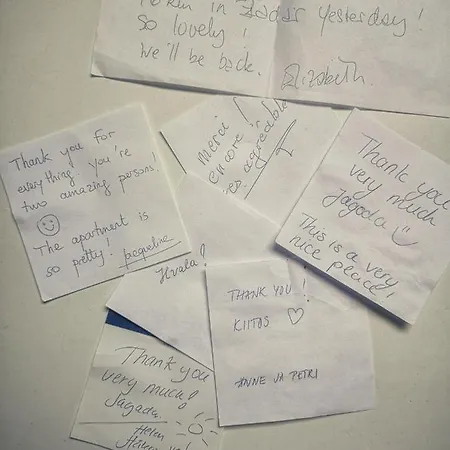 taken in Zadar yesterday!
So lovely!
We'll be back.
Elizabeth.
Thank you for
everything. you're
two amazing persons!
The apartment is
so pretty!
Merci!
encore
agréable
Thank you
very much
Jagoda
This is a very
nice place!
Hvala!
THANK YOU!
KIITOS
ANNE JA PETRI
Thank you
very much!
Jagoda.
Helen